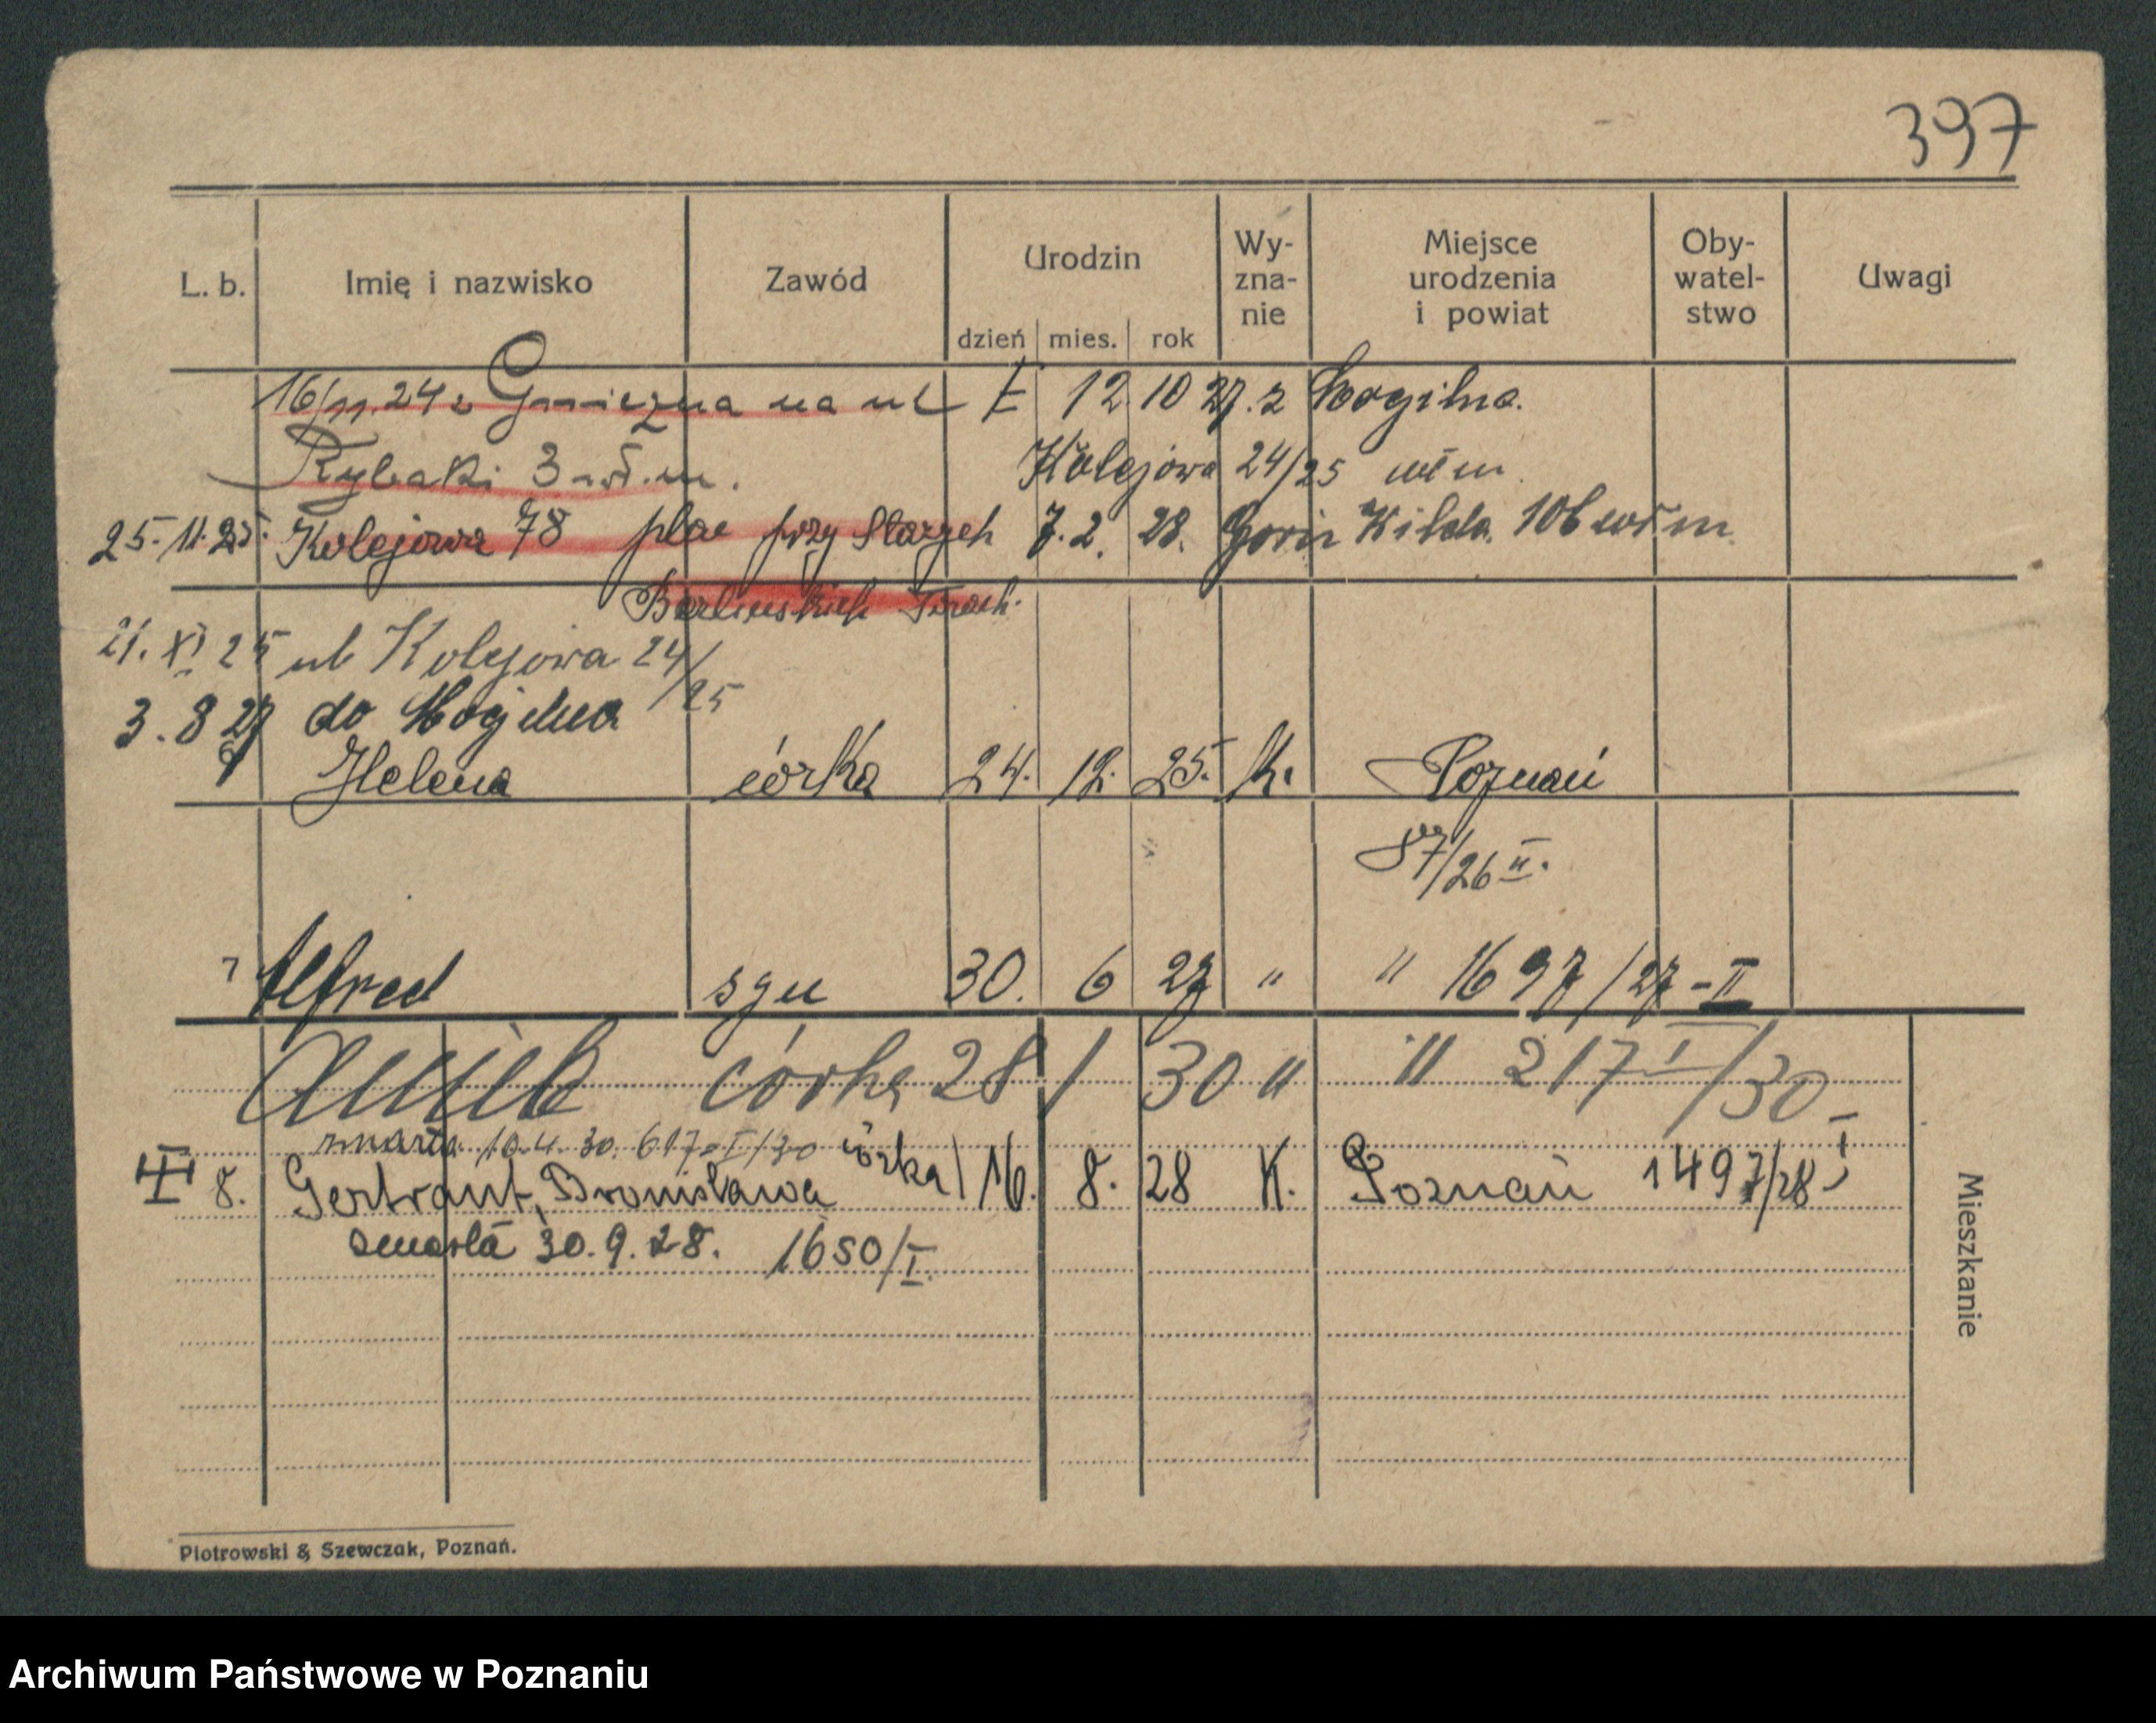 397
L. b. Imię i nazwisko Zawód Urodzin dzień mies. rok Wy-zna-nie Miejsce urodzenia i powiat Oby-watel-stwo Uwagi
16/11.24 z Gniezna na ul 12 10 27. z Mogilna.
Rybaki 3 wł.m. Kolejowa 24/25 wł m
25.11.25. Kolejowa 78 plac przy Starych 7.2. 28. Górn Wilda. 106 wł m
Berlińskich Torach.
21. XI 25 ul Kolejowa 24/25
3.8 27 do Mogilna
Helena córka 24. 12. 25. k. Poznań
87/26 II.
7 Alfred syn 30. 6 27 " " 1697/27-II
córka 28 1 30 " " 217 I/30
zmarła 10.4.30. 617-I/30
8. Gertraut, Bronisława córka 16. 8. 28 K. Poznań 1497/28 I
zmarła 30.9.28. 1650/I.
Mieszkanie
Piotrowski & Szewczak, Poznań.
Archiwum Państwowe w Poznaniu